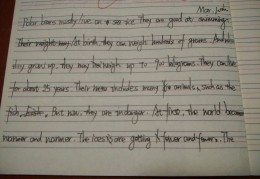 Mon. June
Polar bears mostly live on sea ice. They are good at swimming.
Their weight may. At birth, they can weigh hundreds of grams. And when
they grow up, they may be weigh up to 700 kilograms. They can live
for about 25 years. Their menu includes many animals, such as the
fish, . But now, they are in danger. At first, the world become
warmer and warmer. The ices are getting fewer and fewer. The